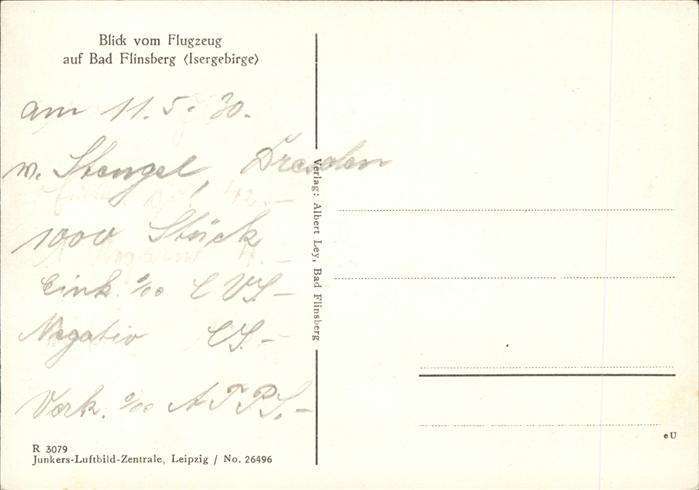 Blick vom Flugzeug
auf Bad Flinsberg (Isergebirge)
am 11.5.30.
v. Stengel, Dresden
1000 Stück
Eink. %00 CVS-
Negativ CS.-
Verk. %00 APPS.-
Verlag: Albert Ley, Bad Flinsberg
R 3079
Junkers-Luftbild-Zentrale, Leipzig / No. 26496
e U